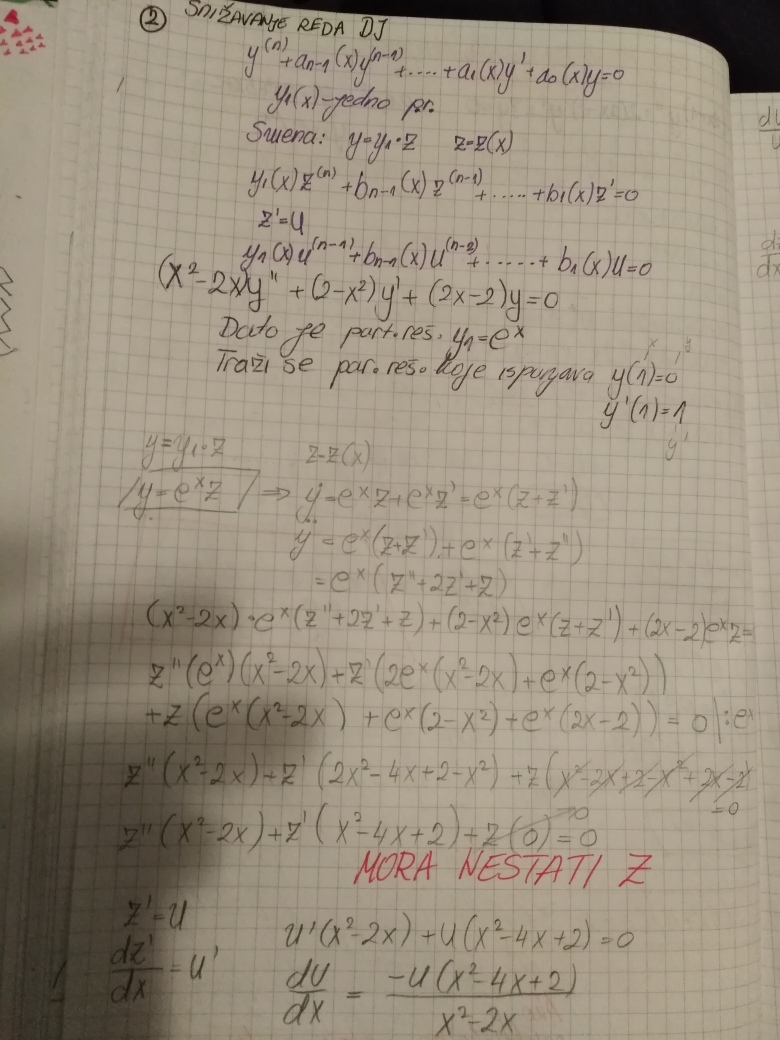 ② SNIŽAVANJE REDA DJ
y⁽ⁿ⁾+aₙ₋₁(x)y⁽ⁿ⁻¹⁾+....+a₁(x)y'+a₀(x)y=0
y₁(x)-jedno pr.
Smena: y=y₁·z z=z(x)
y₁(x)z⁽ⁿ⁾+bₙ₋₁(x)z⁽ⁿ⁻¹⁾+.....+b₁(x)z'=0
z'=u
y₁(x)u⁽ⁿ⁻¹⁾+bₙ₋₁(x)u⁽ⁿ⁻²⁾+......+b₁(x)u=0
(x²-2x)y''+(2-x²)y'+(2x-2)y=0
Dato je part.reš. y₁=eˣ
Traži se par.reš. koje ispunjava y(1)=0
y'(1)=1
y'
y=y₁·z z=z(x)
y=eˣz ⇒ y'=eˣz+eˣz'=eˣ(z+z')
y''=eˣ(z+z')+eˣ(z'+z'')
=eˣ(z''+2z'+z)
(x²-2x)·eˣ(z''+2z'+z)+(2-x²)eˣ(z+z')+(2x-2)eˣz=
z''(eˣ)(x²-2x)+z'(2eˣ(x²-2x)+eˣ(2-x²))
+z(eˣ(x²-2x)+eˣ(2-x²)+eˣ(2x-2))=0 |:eˣ
z''(x²-2x)+z'(2x²-4x+2-x²)+z(x²-2x+2-x²+2x-2)
=0
z''(x²-2x)+z'(x²-4x+2)+z(0)=0
MORA NESTATI Z
z'=u
u'(x²-2x)+u(x²-4x+2)=0
dz'/dx=u' du/dx = -u(x²-4x+2)/x²-2x
du
u
dz
dx